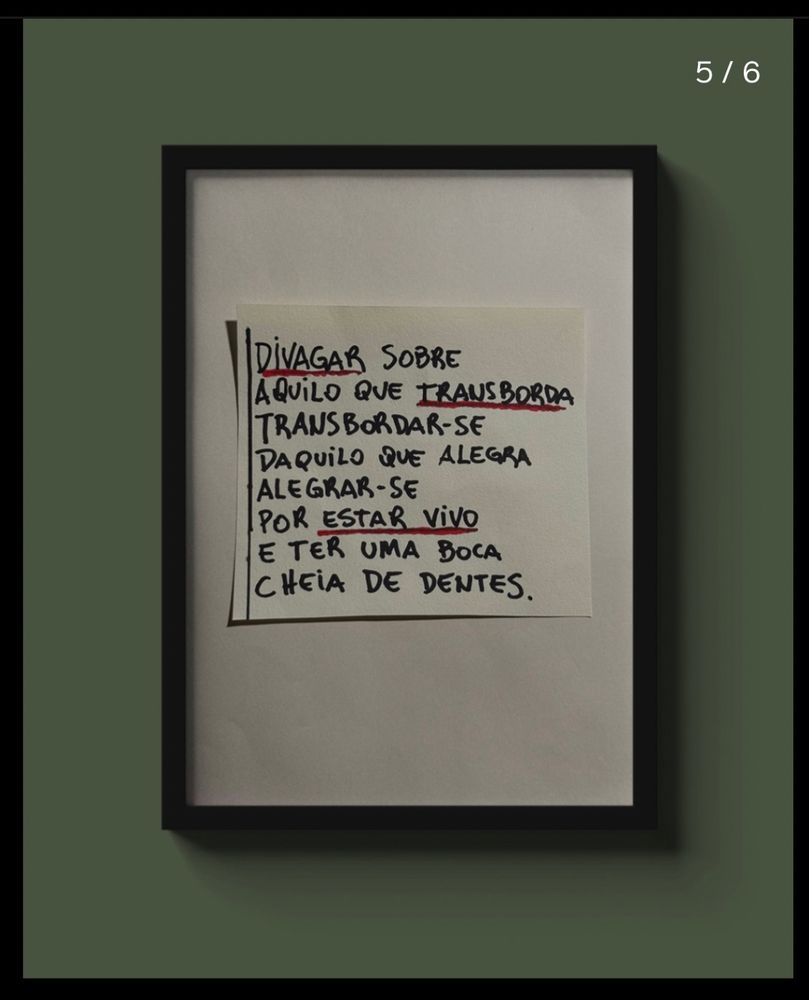 5 / 6
DIVAGAR SOBRE
AQUILO QUE TRANSBORDA
TRANSBORDAR-SE
DAQUILO QUE ALEGRA
ALEGRAR-SE
POR ESTAR VIVO
E TER UMA BOCA
CHEIA DE DENTES.